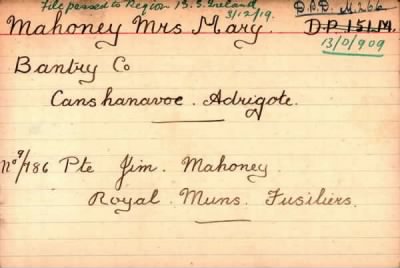 File passed to Region 13. S. Ireland
3/12/19.
D.P.D. M.266
Mahoney Mrs Mary.
D.P. 151.M.
13/0/909
Bantry Co
Canshanavoe. Adrigote.
No 9/786 Pte Jim. Mahoney.
Royal. Muns. Fusiliers.